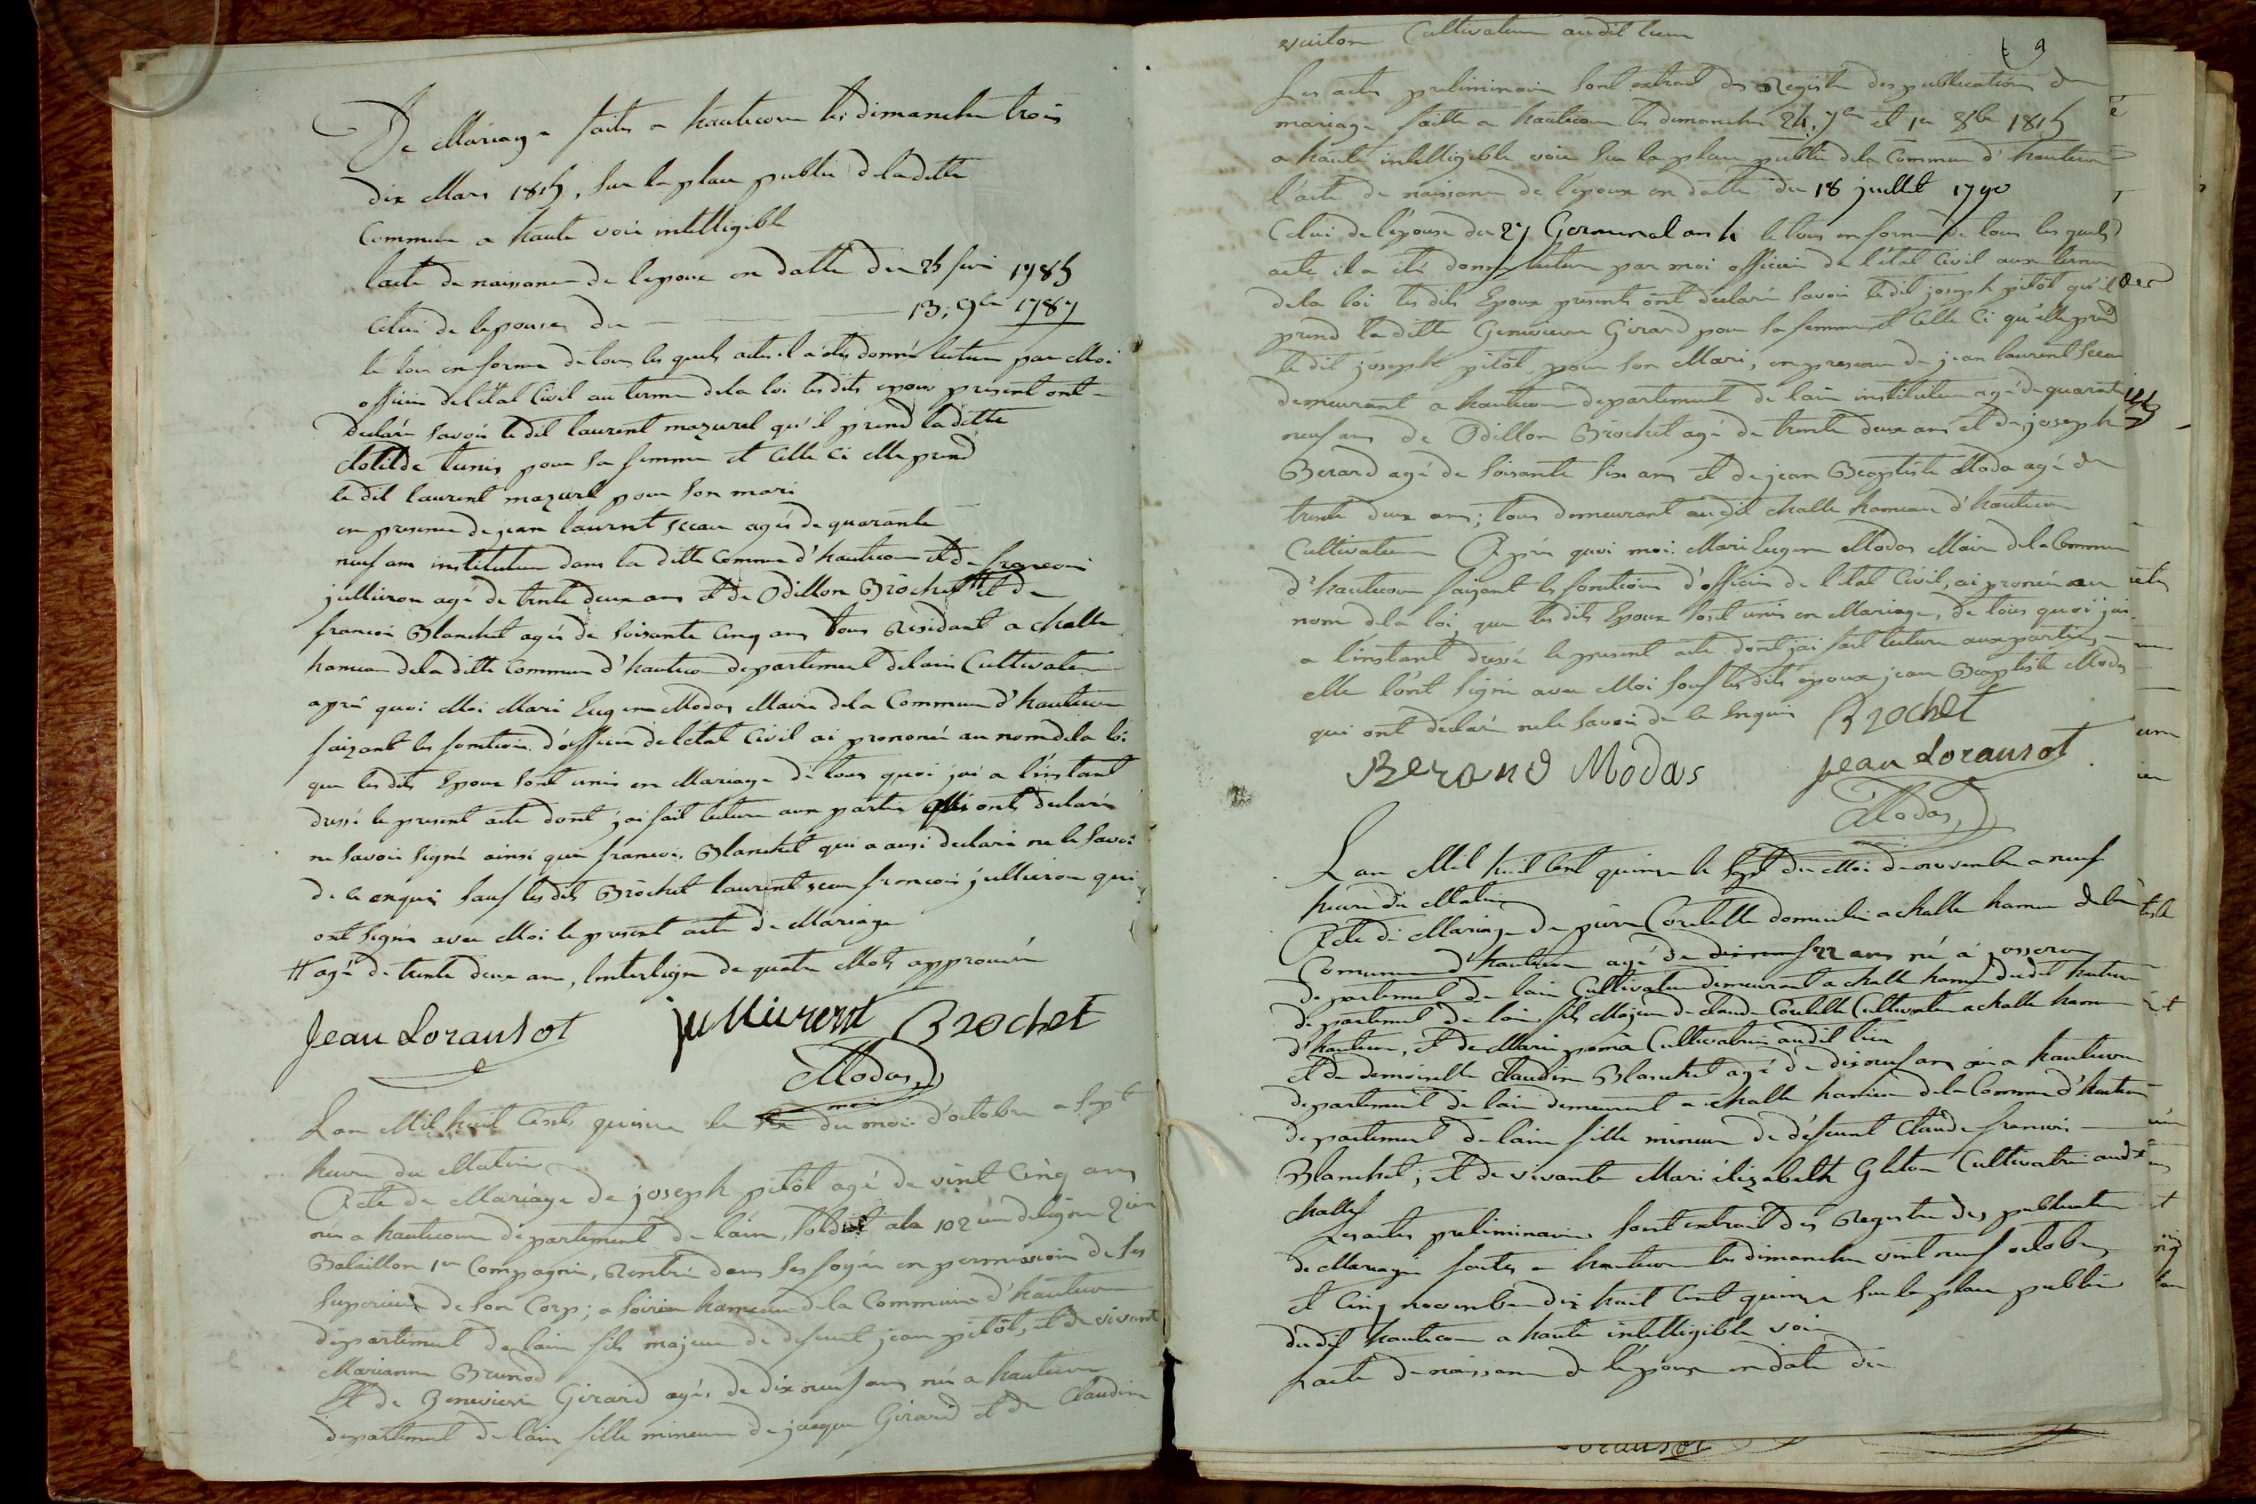 De Mariage faites a hauticour les dimanche trois
dix Mars 1815, sur la place public de la ditte
Commune a haute voix intelligible
lacte de naissance de lepoux en datte du 25 1785
Celui de lepouse du 13, 9bre 1787
le tous en forme de tous les quels actes il a étés donné lecture par Moi
officier de létat Civil au terme de la loi les dits epoux présent ont
Declaré savoir le dit laurent mazurel qu'il prend la ditte
Clotilde tunis pour sa femme et Celle Ci elle prend
le dit laurent mazurel pour son mari
en presence de jean laurent agés de quarante
neuf ans instituteur dans la ditte Commune d'hauticour et de francois
jullieron agé de trente deux ans et de Odillon Brôchet # et de
francois Blanchet agés de soisante Cinq ans tous Residant a challe
hameau de la ditte Commune d'hauticour departement de lain Cultivateur
aprè quoi Moi Mari Eugene Modas Maire de la Commune d'hauticour
faizant les fonction d'officier de létat Civil ai prononcé au nom de la loi
que les dits Epoux sont unis en Mariage de tous quoi jai a l'instant
dressé le present acte dont j'ai fait lecture aux parties qui ont declaré
ne savoir signé ainsi que francois Blanchet qui a aussi declaré ne le savoir
de ce enquis sauf les dits Brôchet laurent francois jullieron qui
ont signé avec Moi le present acte de Mariage
# agé de trente deux ans, interligne de quatre Mots approuvée
Jean Loransot jullieron Brochet
Modas
mois
Lan Mil huit Cent quinze le du moi d'octobre a sept
heure du Matin
Acte de Mariage de joseph pitôt agé de vint Cinq ans
née a hauticour departement de lain, soldat a la 102 em de ligne 2 em
Bataillon 1er Compagnie, Rentré dans ses foyés en permission de ses
superieur de son Corp; a hameau de la Commune d'hauticour
departement de lain fils majeur de defeunt jean pitôt, et de vivante
Marianne Brunod
Et de Genevieve Girard agés de dix neuf ans née a hauticour
departement de l'ain fille mineure de jacque Girard et de Claudine
Cultivateur au dit lieu
9
Les actes preliminaire sont extrait des Registre des publication de
mariage faitte a hauticour les dimanche 24, 7bre et 1er 8bre 1815
a haute intelligible voix sur la place public de la Commune d'hauticour
l'acte de naissance de l'époux en datte du 18 juillet 1790
Celui de l'épouse du 27 Germinal an 4 le tous en forme de tous les quels
acte il a été donné lecture par moi officier de l'état Civil aux terme
de la loi les dits Epoux présents ont déclaré savoir le dit joseph pitôt qu'il
prend la ditte Genevieve Girard pour sa femme et Celle Ci qu'elle prend
le dit joseph pitôt pour son Mari, en presence de jean laurent
demeurant a hauticour departement de lain instituteur agé de quarante
neuf ans de Odillon Brôchet agé de trente deux ans et de joseph
Berard agé de soisante six ans et de jean Baptiste Moda agé de
trente deux ans; tous demeurant au dit challe hameau d'hauticour
Cultivateur Aprè quoi moi Mari Eugene Modas Maire de la Commune
d'hauticour faizant les fonction d'officier de l'état Civil, ai prononcé au
nom de la loi que les dits Epoux sont unis en Mariage, de tous quoi jai
a l'instant dressé le present acte dont jai fait lecture aux parties
elle lont signé avec Moi sauf les dits époux jean Baptiste Modas
qui ont déclaré ne le savoir de ce Enquis Brochet
Berand Modas Jean Loransot
Modas
Lan Mil huit Cent quinze le sept du Moi de novembre a neuf
heure du Matin
Acte de Mariage de pierre Coutelle domicilié a challe hameau de la
Commune d'hauticour agé de dix neuf 22 ans né a
departement de lain Cultivateur demeurant a challe hameau du dit hauticour
departement de lain fils Majeur de Claude Coutelle Cultivateur a challe hameau
d'hauticour, et de Marie Cultivatrice au dit lieu
et de demoiselle Claudine Blanchet agé de dix neuf ans née a hauticour
departement de lain demeurant a challe hameau de la Commune d'hauticour
departement de lain fille mineure de défeunt Claude francois
Blanchet; et de vivante Mari élizabeth Cultivatrice audit
challe
Les actes preliminaires sont extrait des Registre des publication
de Mariage faites a hauticour les dimanche vint neuf octobre
et Cinq novembre dix huit Cent quinze sur la place public
du dit hauticour a haute intelligible voix
Lacte de naissance de l'époux en date du